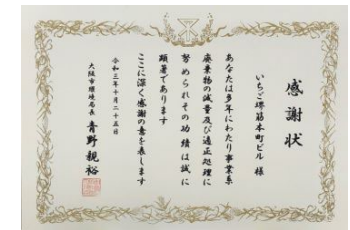 感謝状
いちご堺筋本町ビル 様
あなたは多年にわたり事業系
廃棄物の減量及び適正処理に
努められその功績は誠に
顕著であります
ここに深く感謝の意を表します
令和三年十月二十五日
大阪市環境局長 青野親裕